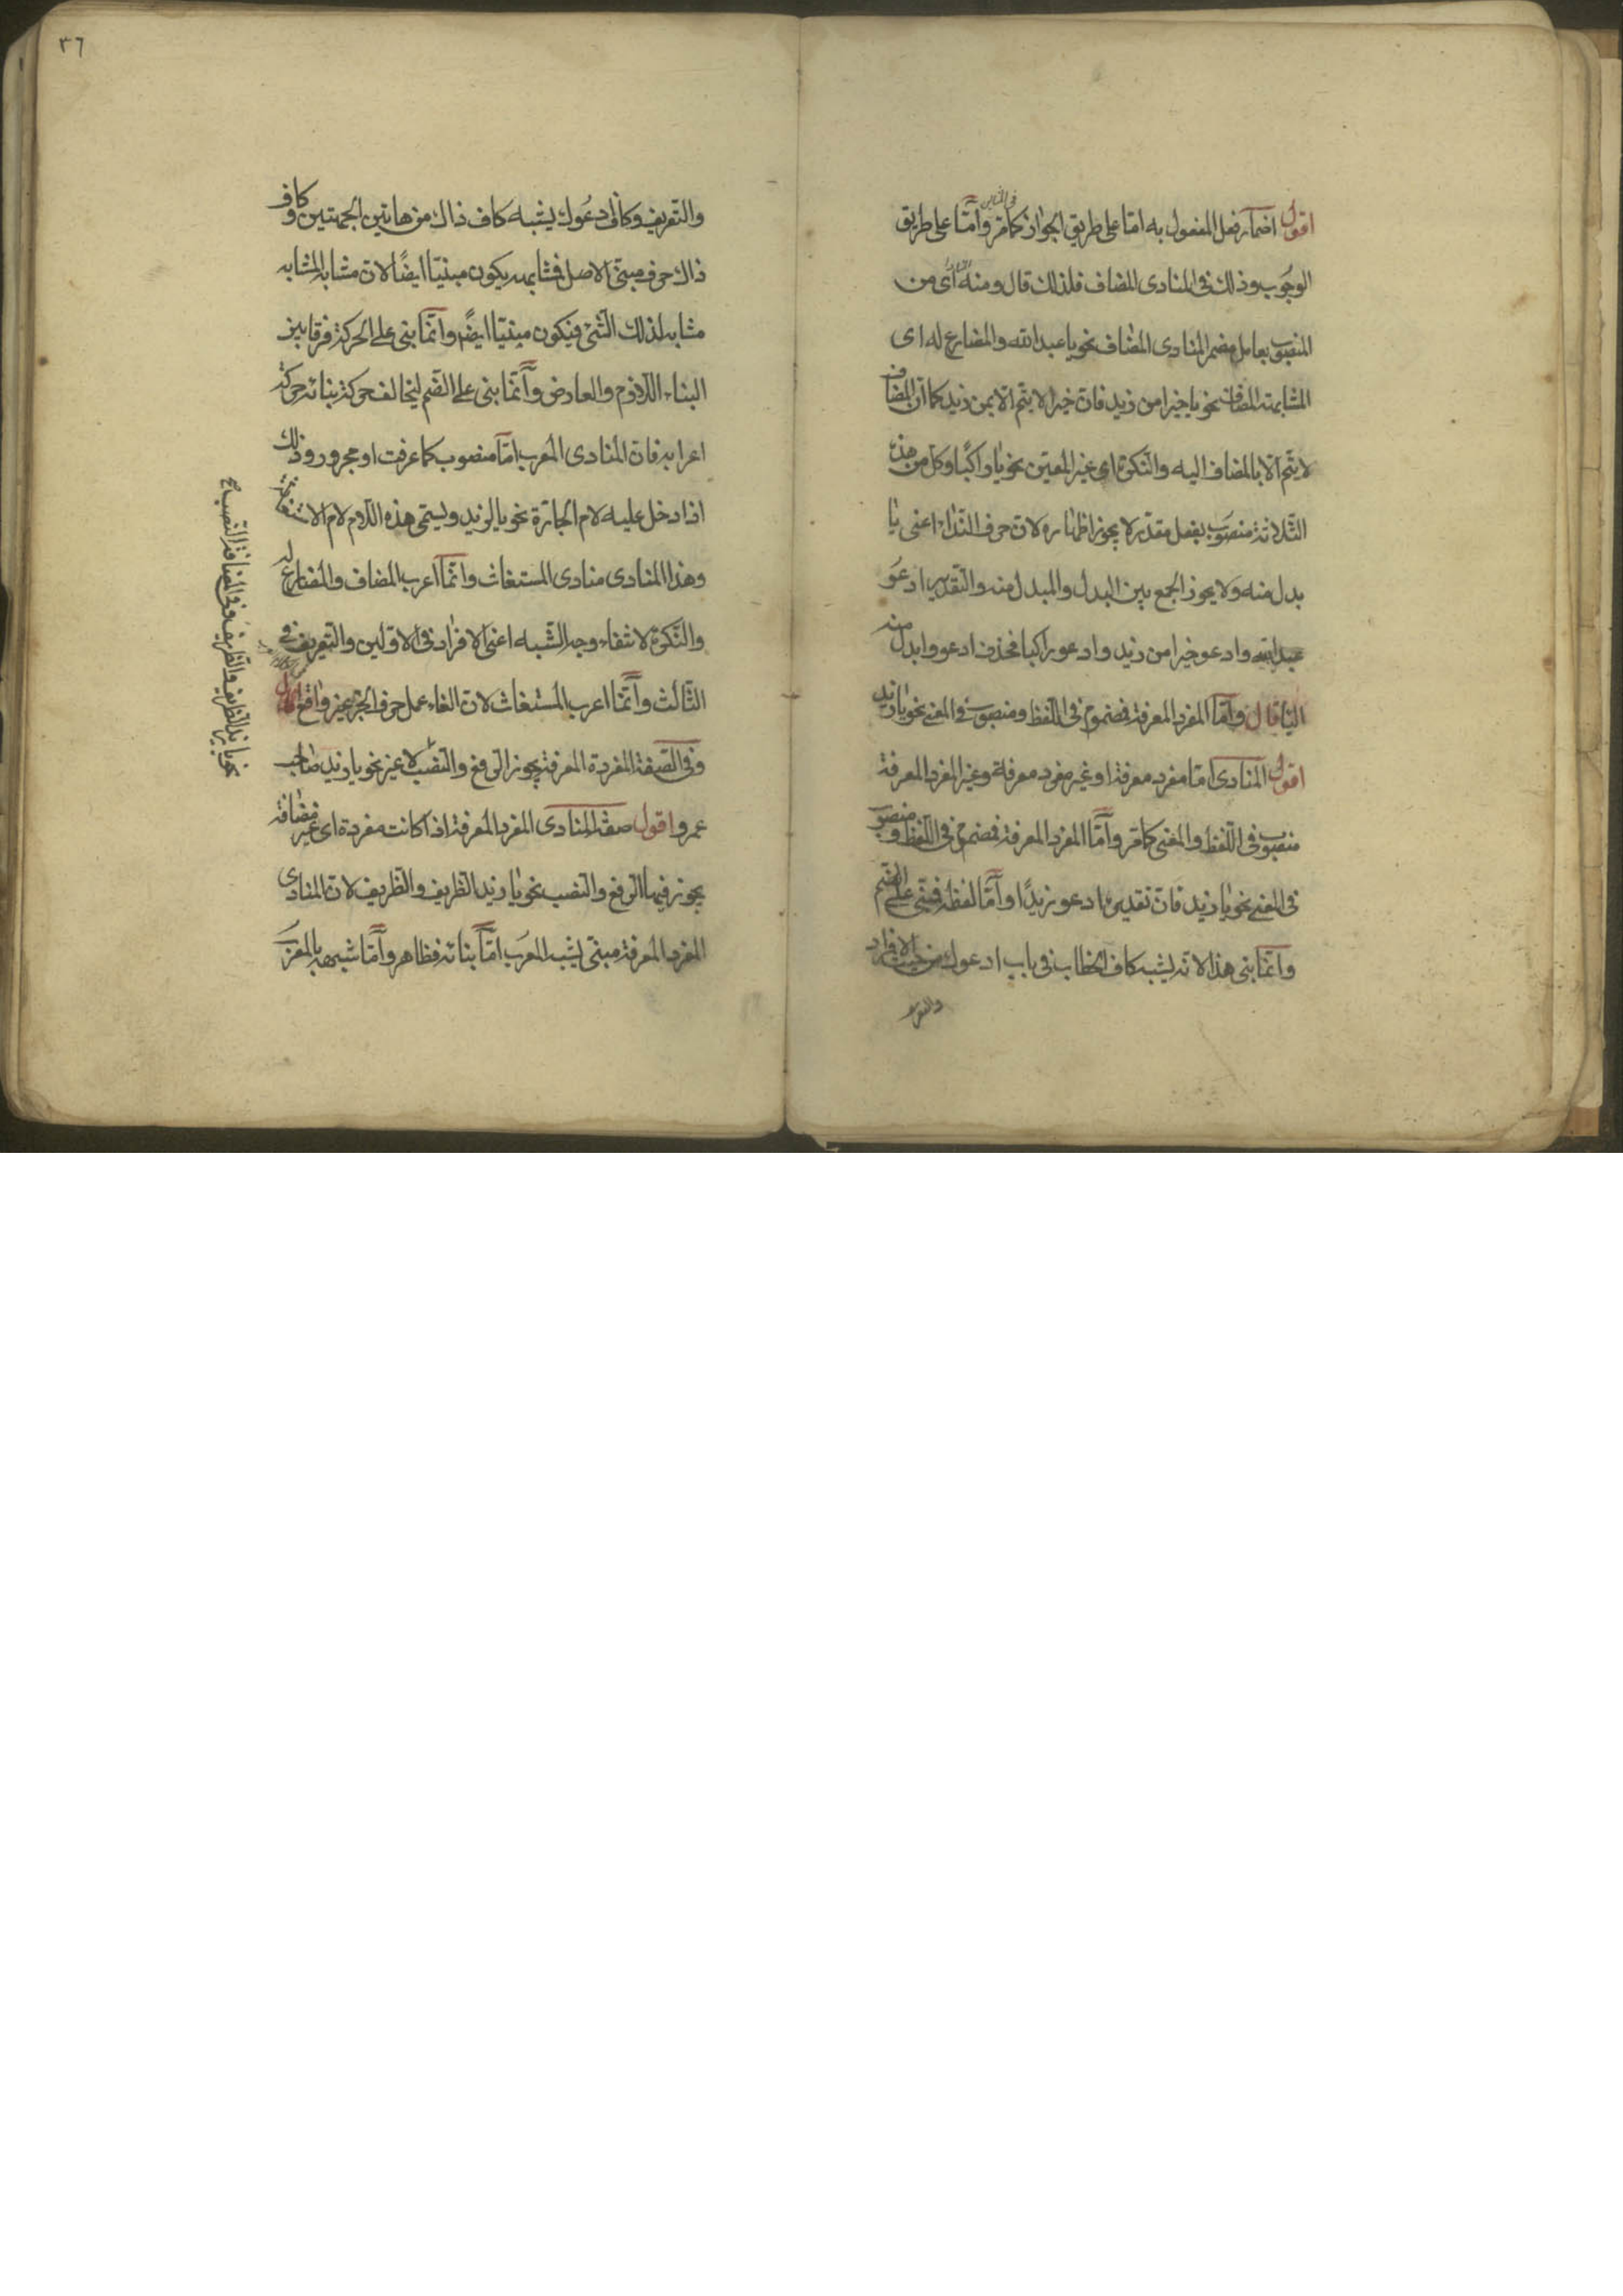 اقول اضمار فعل المفعول به امّا على طريق الجواز كما مرّ وامّا على طريق
الوجوب وذلك فى المنادى المضاف فلذلك قال ومنه اى من
المنصوب بعامل مضمر المنادى المضاف نحو يا عبد الله والمضارع له اى
المشابه للمضاف نحو يا خيرا من زيد فانّ خيرا لا يتمّ الّا بمن زيد كما انّ المضاف
لا يتمّ الّا بالمضاف اليه والنّكرة اى غير المعيّن نحو يا راكبًا وكل من هذه
الثّلاثة منصوب بفعل مقدّر لا يجوز اظهاره لانّ حرف النّداء اعنى يا
بدل منه ولا يجوز الجمع بين البدل والمبدل منه والتّقدير ادعو
عبد الله وادعو خيرا من زيد وادعو راكبا فحذف ادعو وابدل منه
اليا قال وامّا المفرد المعرفة فمضموم فى اللّفظ ومنصوب فى المعنى نحو يا زيد
اقول المنادى امّا مفرد معرفة او غير مفرد معرفة وغير المفرد المعرفة
منصوب فى اللّفظ والمعنى كما مرّ وامّا المفرد المعرفة فمضموم فى اللّفظ ومنصوب
فى المعنى نحو يا زيد فانّ تقديره ادعو زيدًا وامّا لفظه فمبنى على الضم
وانّما بنى هذا لانّه يشبه كاف الخطاب فى باب ادعوك من حيث الافراد
والتعريف
٣٦
والتّعريف وكاف ادعوك يشبه كاف ذاك من هاتين الجهتين وكاف
ذاك حرف مبنى الاصل فمشابهه يكون مبنيّا ايضًا لانّ مشابه المشابه
مشابه لذلك الشّئ فيكون مبنيّا ايضًا وانّما بنى على الحركة فرقا بين
البناء اللّازم والعارض وانّما بنى على الضّم ليخالف حركة بنائه حركة
اعرابه فانّ المنادى المعرب امّا منصوب كما عرفت او مجرور وذلك
اذا دخل عليه لام الجارّة نحو يا لزيد ويسمّى هذه اللّام لام الاستغاثة
وهذا المنادى منادى المستغاث وانّما اعرب المضاف والمضارع له
والنّكرة لانتفاء وجه الشّبه اعنى الافراد فى الاوّلين والتّعريف فى
الثّالث وانّما اعرب المستغاث لانّ الغاء عمل حرف الجرّ غير واقع قال
وفى الصّفة المفردة المعرفة يجوز الرّفع والنّصب لا غير نحو يا زيد صاحب
عمرو اقول صفة المنادى المفرد المعرفة اذا كانت مفردة اى غير مضافة
يجوز فيها الرّفع والنّصب نحو يا زيد الظّريف والظّريف لانّ المنادى
المفرد المعرفة مبنى يشبه المعرب امّا بنائه فظاهر وامّا شبهه بالمعرب
نحو يا زيد الظريف والظريف وفى المضافة النصب صح